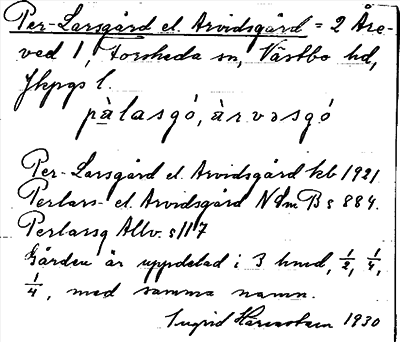 Per-Larsgård el. Arvidsgård = 2 Åre-
ved 1, Forsheda sn, Västbo hd,
Jkpgs l.
pàlasgó, àrvəsgó
Per-Larsgård el. Arvidsgård kb 1921
Perlars- el. Arvidsgård NSm B s 884.
Perlarsg Allv. s 117
Gården är uppdelad i 3 hmd, 1/2, 1/4,
1/4, med samma namn.
Ingrid 1930